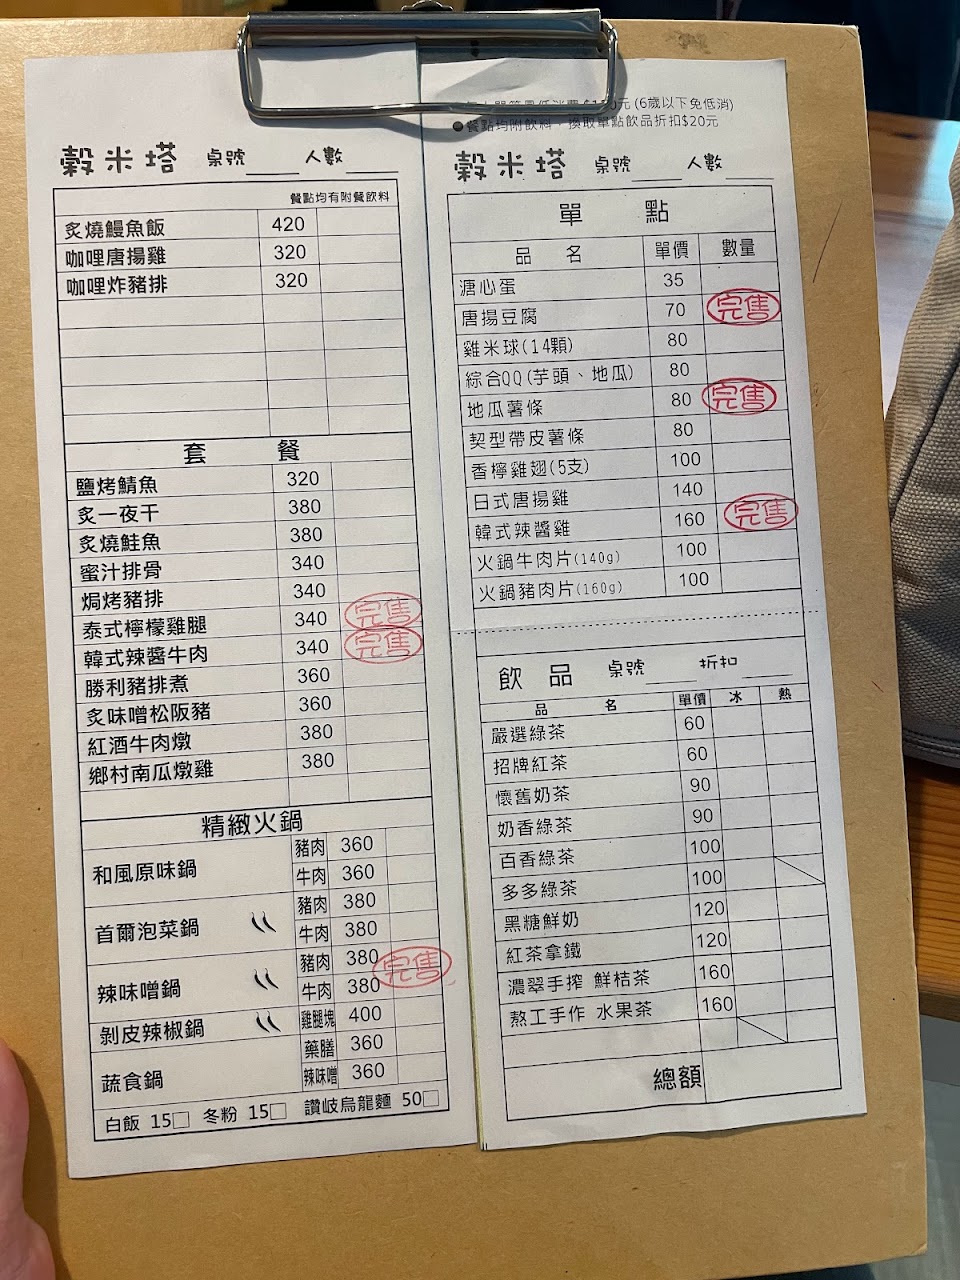 穀米塔 桌號 人數
餐點均有附餐飲料
炙燒鰻魚飯 420
咖哩唐揚雞 320
咖哩炸豬排 320
套 餐
鹽烤鯖魚 320
炙一夜干 380
炙燒鮭魚 380
蜜汁排骨 340
焗烤豬排 340
泰式檸檬雞腿 340 完售
韓式辣醬牛肉 340 完售
勝利豬排煮 360
炙味噌松阪豬 360
紅酒牛肉燉 380
鄉村南瓜燉雞 380
精緻火鍋
和風原味鍋 豬肉 360
牛肉 360
首爾泡菜鍋 豬肉 380
牛肉 380
辣味噌鍋 豬肉 380 完售
牛肉 380
剝皮辣椒鍋 雞腿塊 400
蔬食鍋 藥膳 360
辣味噌 360
白飯 15□ 冬粉 15□ 讚岐烏龍麵 50□
元 (6歲以下免低消)
●餐點均附飲料，換取單點飲品折扣$20元
穀米塔 桌號 人數
單 點
品 名 單價 數量
溏心蛋 35
唐揚豆腐 70 完售
雞米球(14顆) 80
綜合QQ(芋頭、地瓜) 80
地瓜薯條 80 完售
契型帶皮薯條 80
香檸雞翅(5支) 100
日式唐揚雞 140
韓式辣醬雞 160 完售
火鍋牛肉片(140g) 100
火鍋豬肉片(160g) 100
飲 品 桌號 折扣
品 名 單價 冰 熱
嚴選綠茶 60
招牌紅茶 60
懷舊奶茶 90
奶香綠茶 90
百香綠茶 100
多多綠茶 100
黑糖鮮奶 120
紅茶拿鐵 120
濃翠手搾 鮮桔茶 160
熬工手作 水果茶 160
總額